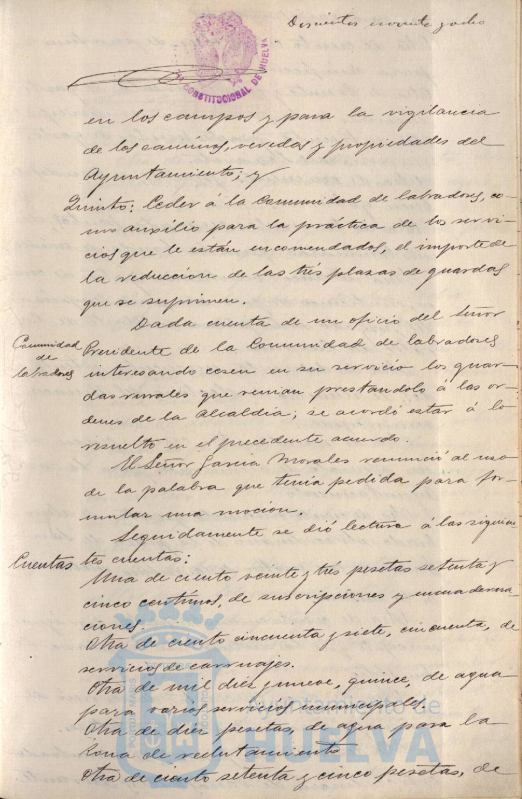 Doscientos noventa y ocho
CONSTITUCIONAL DE HUELVA
en los campos y para la vigilancia
de los caminos, veredas y propiedades del
Ayuntamiento; y
Quinto: Ceder á la Comunidad de labradores, co-
mo auxilio para la práctica de los servi-
cios que le están encomendados, el importe de
la reducción de las tres plazas de guardas
que se suprimen.
Dada cuenta de un oficio del Señor
Comunidad de labradores
Presidente de la Comunidad de labradores
interesando cesen en su servicio los guar-
das rurales que venian prestandolo á las or-
denes de la Alcaldia; se acordó estar á lo
resuelto en el precedente acuerdo.
El Señor Garcia Morales renunció al uso
de la palabra que tenia pedida para for-
mular una moción.
Seguidamente se dió lectura á las siguien-
Cuentas
tes cuentas:
Una de ciento veinte y tres pesetas setenta y
cinco centimos, de suscripciones y encuaderna-
ciones.
Otra de ciento cincuenta y siete, cincuenta, de
servicios de carruajes.
Otra de mil diez y nueve, quince, de agua
para varios servicios municipales.
Otra de diez pesetas, de agua para la
Zona de reclutamiento
Otra de ciento setenta y cinco pesetas, de
Ayuntamiento de
HUELVA